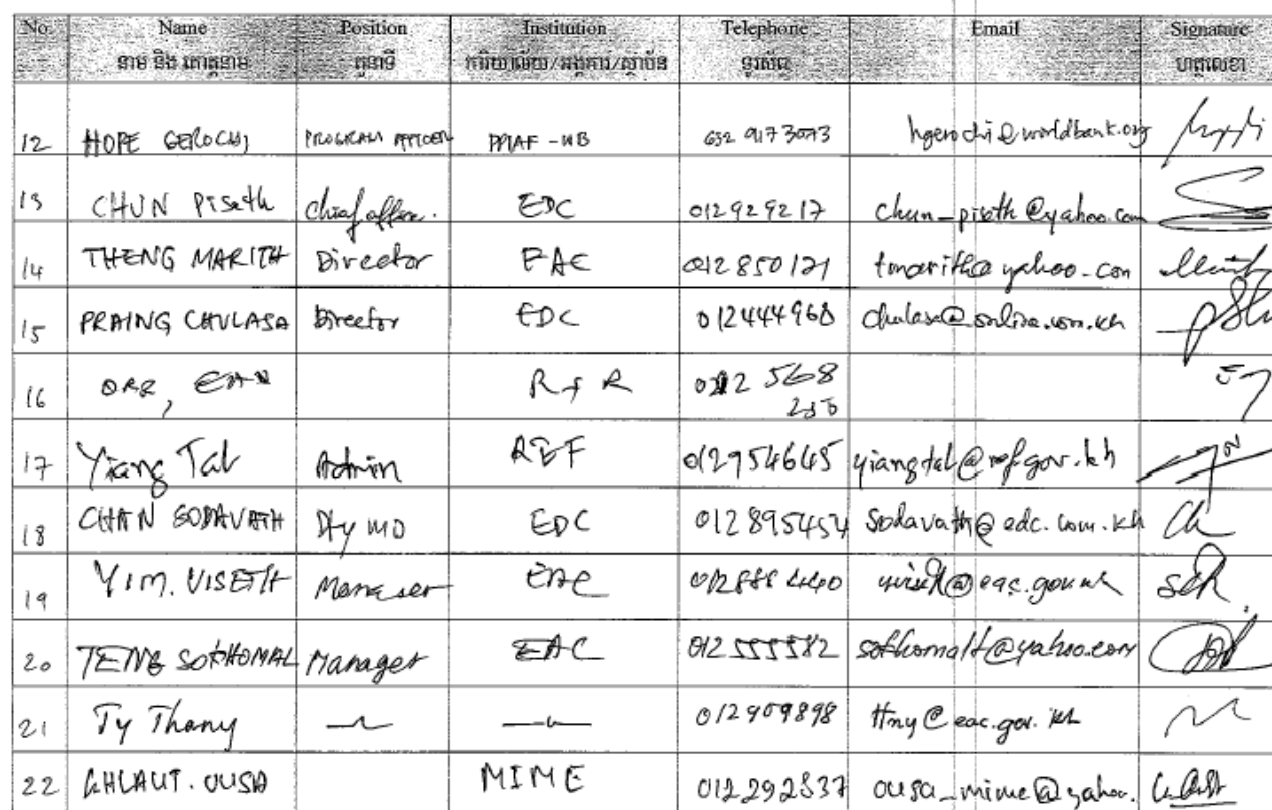 No. Name Position Institution Telephone Email Signature
នាម និង គោត្តនាម តួនាទី ការិយាល័យ/អង្គការ/ស្ថាប័ន ទូរស័ព្ទ ហត្ថលេខា
12 HOPE GEROCHI PROGRAM OFFICER PPIAF -WB 632 9173073 hgerochi@worldbank.org
13 CHUN Piseth Chief office. EDC 012929217 chun_piseth@yahoo.com
14 THENG MARITH Director EAC 012850121 tmarith@yahoo.com
15 PRAING CHULASA Director EDC 012444968 chulasa@online.com.kh
16 ORR, EHAN R & R 012 568
17 Yiang Tal Admin REF 012954645 yiangtal@ref.gov.kh
18 CHAN SODAVATH Dty MD EDC 012895454 sodavath@edc.com.kh
19 YIM. VISETH Manager EAC 012888440
20 TENG SOKHOMAL Manager EAC 012555582
21 Ty Thany 012909898 ttny@eac.gov.kh
22 MIME 012292537 ousa_mime@yahoo.